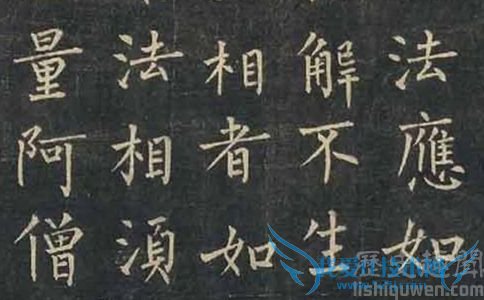 法應如
解不生
相者如
法相湏
量阿僧
lishiquwen.com